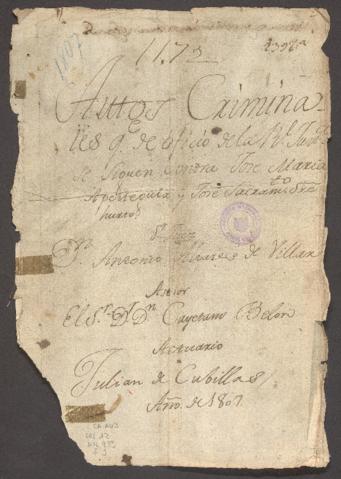 1807
1172
Autos Crimina-
les q.e de oficio de la R.l Just.a
se siguen contra José Maria
y José Sacramento Sre
hurto
S.r Juez
D.n Antonio Alvares de Villar
Asior
El S.r D.r D.n Cayetano Belon
Actuario
Julian de Cubillas
Año de 1807